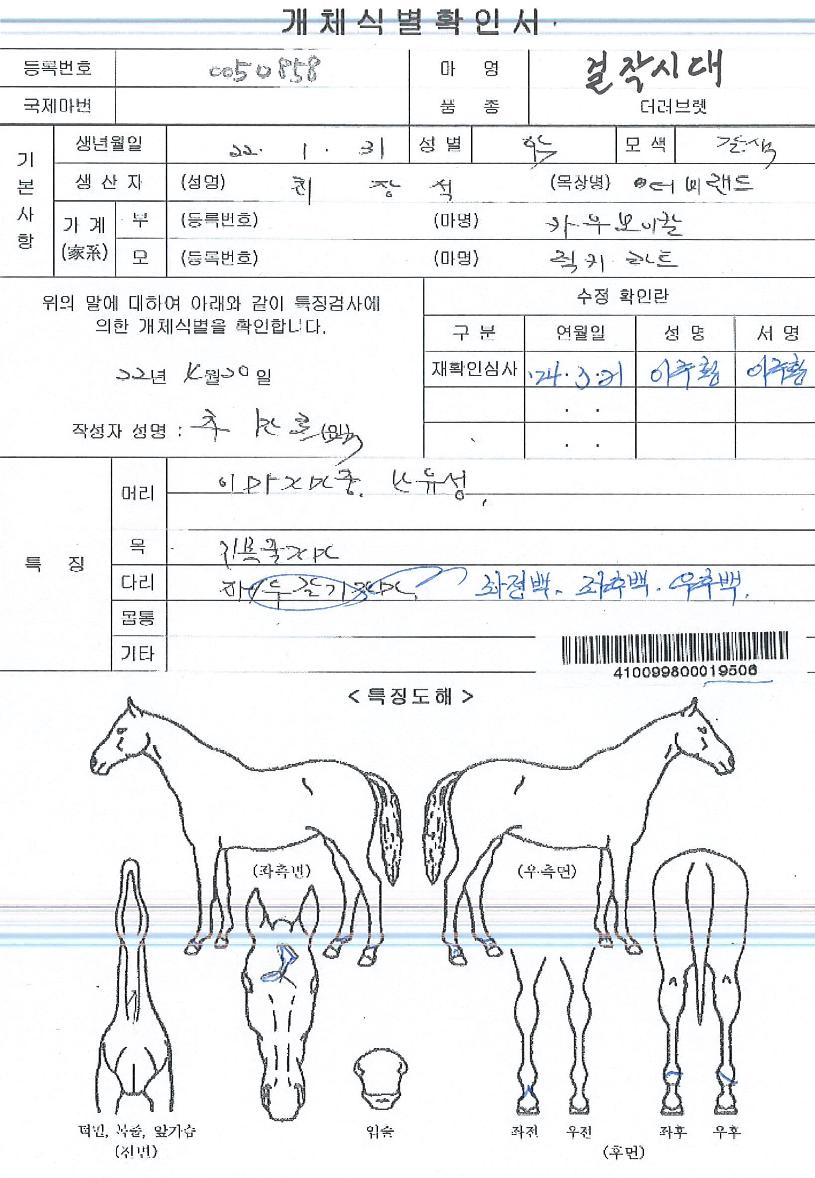 개체식별확인서
등록번호 0050858 마 명 걸작시대
국제마번 품 종 더러브렛
기본사항
생년월일 22. 1. 31 성별 모색 갈색
생산자 (성명) 최 장 석 (목장명) 더비랜드
가계 (家系) 부 (등록번호) (마명) 카우보이칼
모 (등록번호) (마명) 럭키
위의 말에 대하여 아래와 같이 특징검사에
의한 개체식별을 확인합니다.
22년 4월 20일
작성자 성명 : (인)
수정 확인란
구분 연월일 성명 서명
재확인심사 '24.3.21 이주황 이주황
특 징
머리
목
다리 좌전백. 좌후백. 우후백.
몸통
기타
410099800019506
< 특징도해 >
(좌측면) (우측면)
턱밑, 목줄, 앞가슴 입술 좌전 우전 좌후 우후
(전면) (후면)